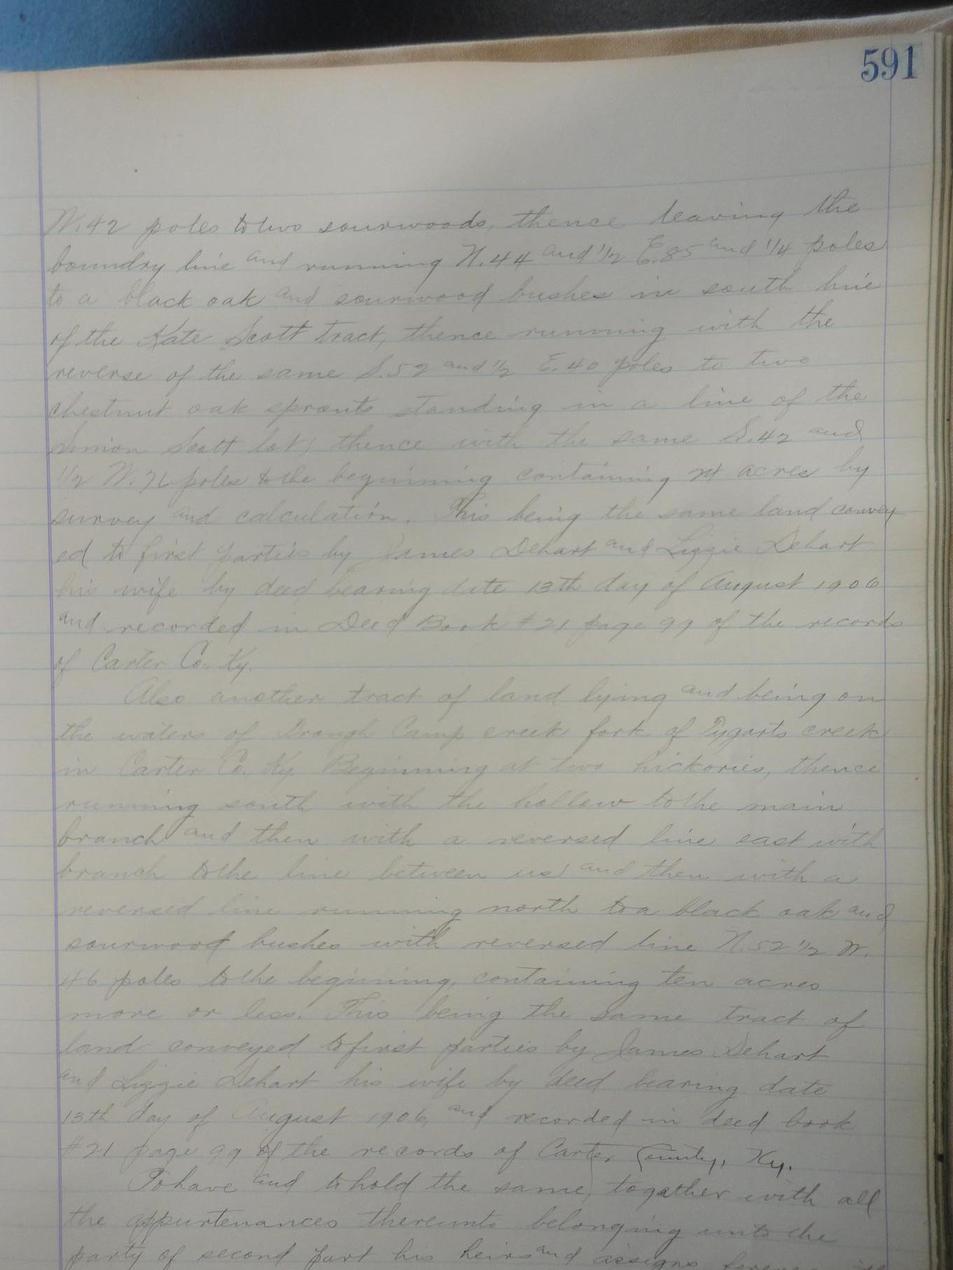 591
W. 42 poles to two sourwoods, thence leaving the
boundry line and running N. 44 and 1/2 E. 85 and 1/4 poles
to a black oak and sourwood bushes in south line
of the Kate Scott tract, thence running with the
reverse of the same S. 52 and 1/2 E. 40 poles to two
chestnut oak sprouts standing in a line of the
Scott lot, thence with the same S. 42 and
1/2 W. 76 poles to the beginning containing acres by
survey and calculation. This being the same land convey
ed to first parties by James Dehart and Lizzie Dehart
his wife by deed bearing date 13th day of August 1906
and recorded in Deed Book #21 page 99 of the records
of Carter Co. Ky.
Also another tract of land lying and being on
the waters of Trough Camp creek fork of Tygarts creek
in Carter Co. Ky Beginning at two hickories, thence
running south with the hollow to the main
branch and then with a reversed line east with
branch to the line between us and then with a
reversed line running north to a black oak and
sourwood bushes with reversed line N. 52 1/2 W.
46 poles to the beginning, containing ten acres
more or less. This being the same tract of
land conveyed to first parties by James Dehart
and Lizzie Dehart his wife by deed bearing date
13th day of August 1906 and recorded in deed book
#21 page 99 of the records of Carter County, Ky.
To have and to hold the same, together with all
the appurtenances thereunto belonging unto the
party of second part his heirs and assigns